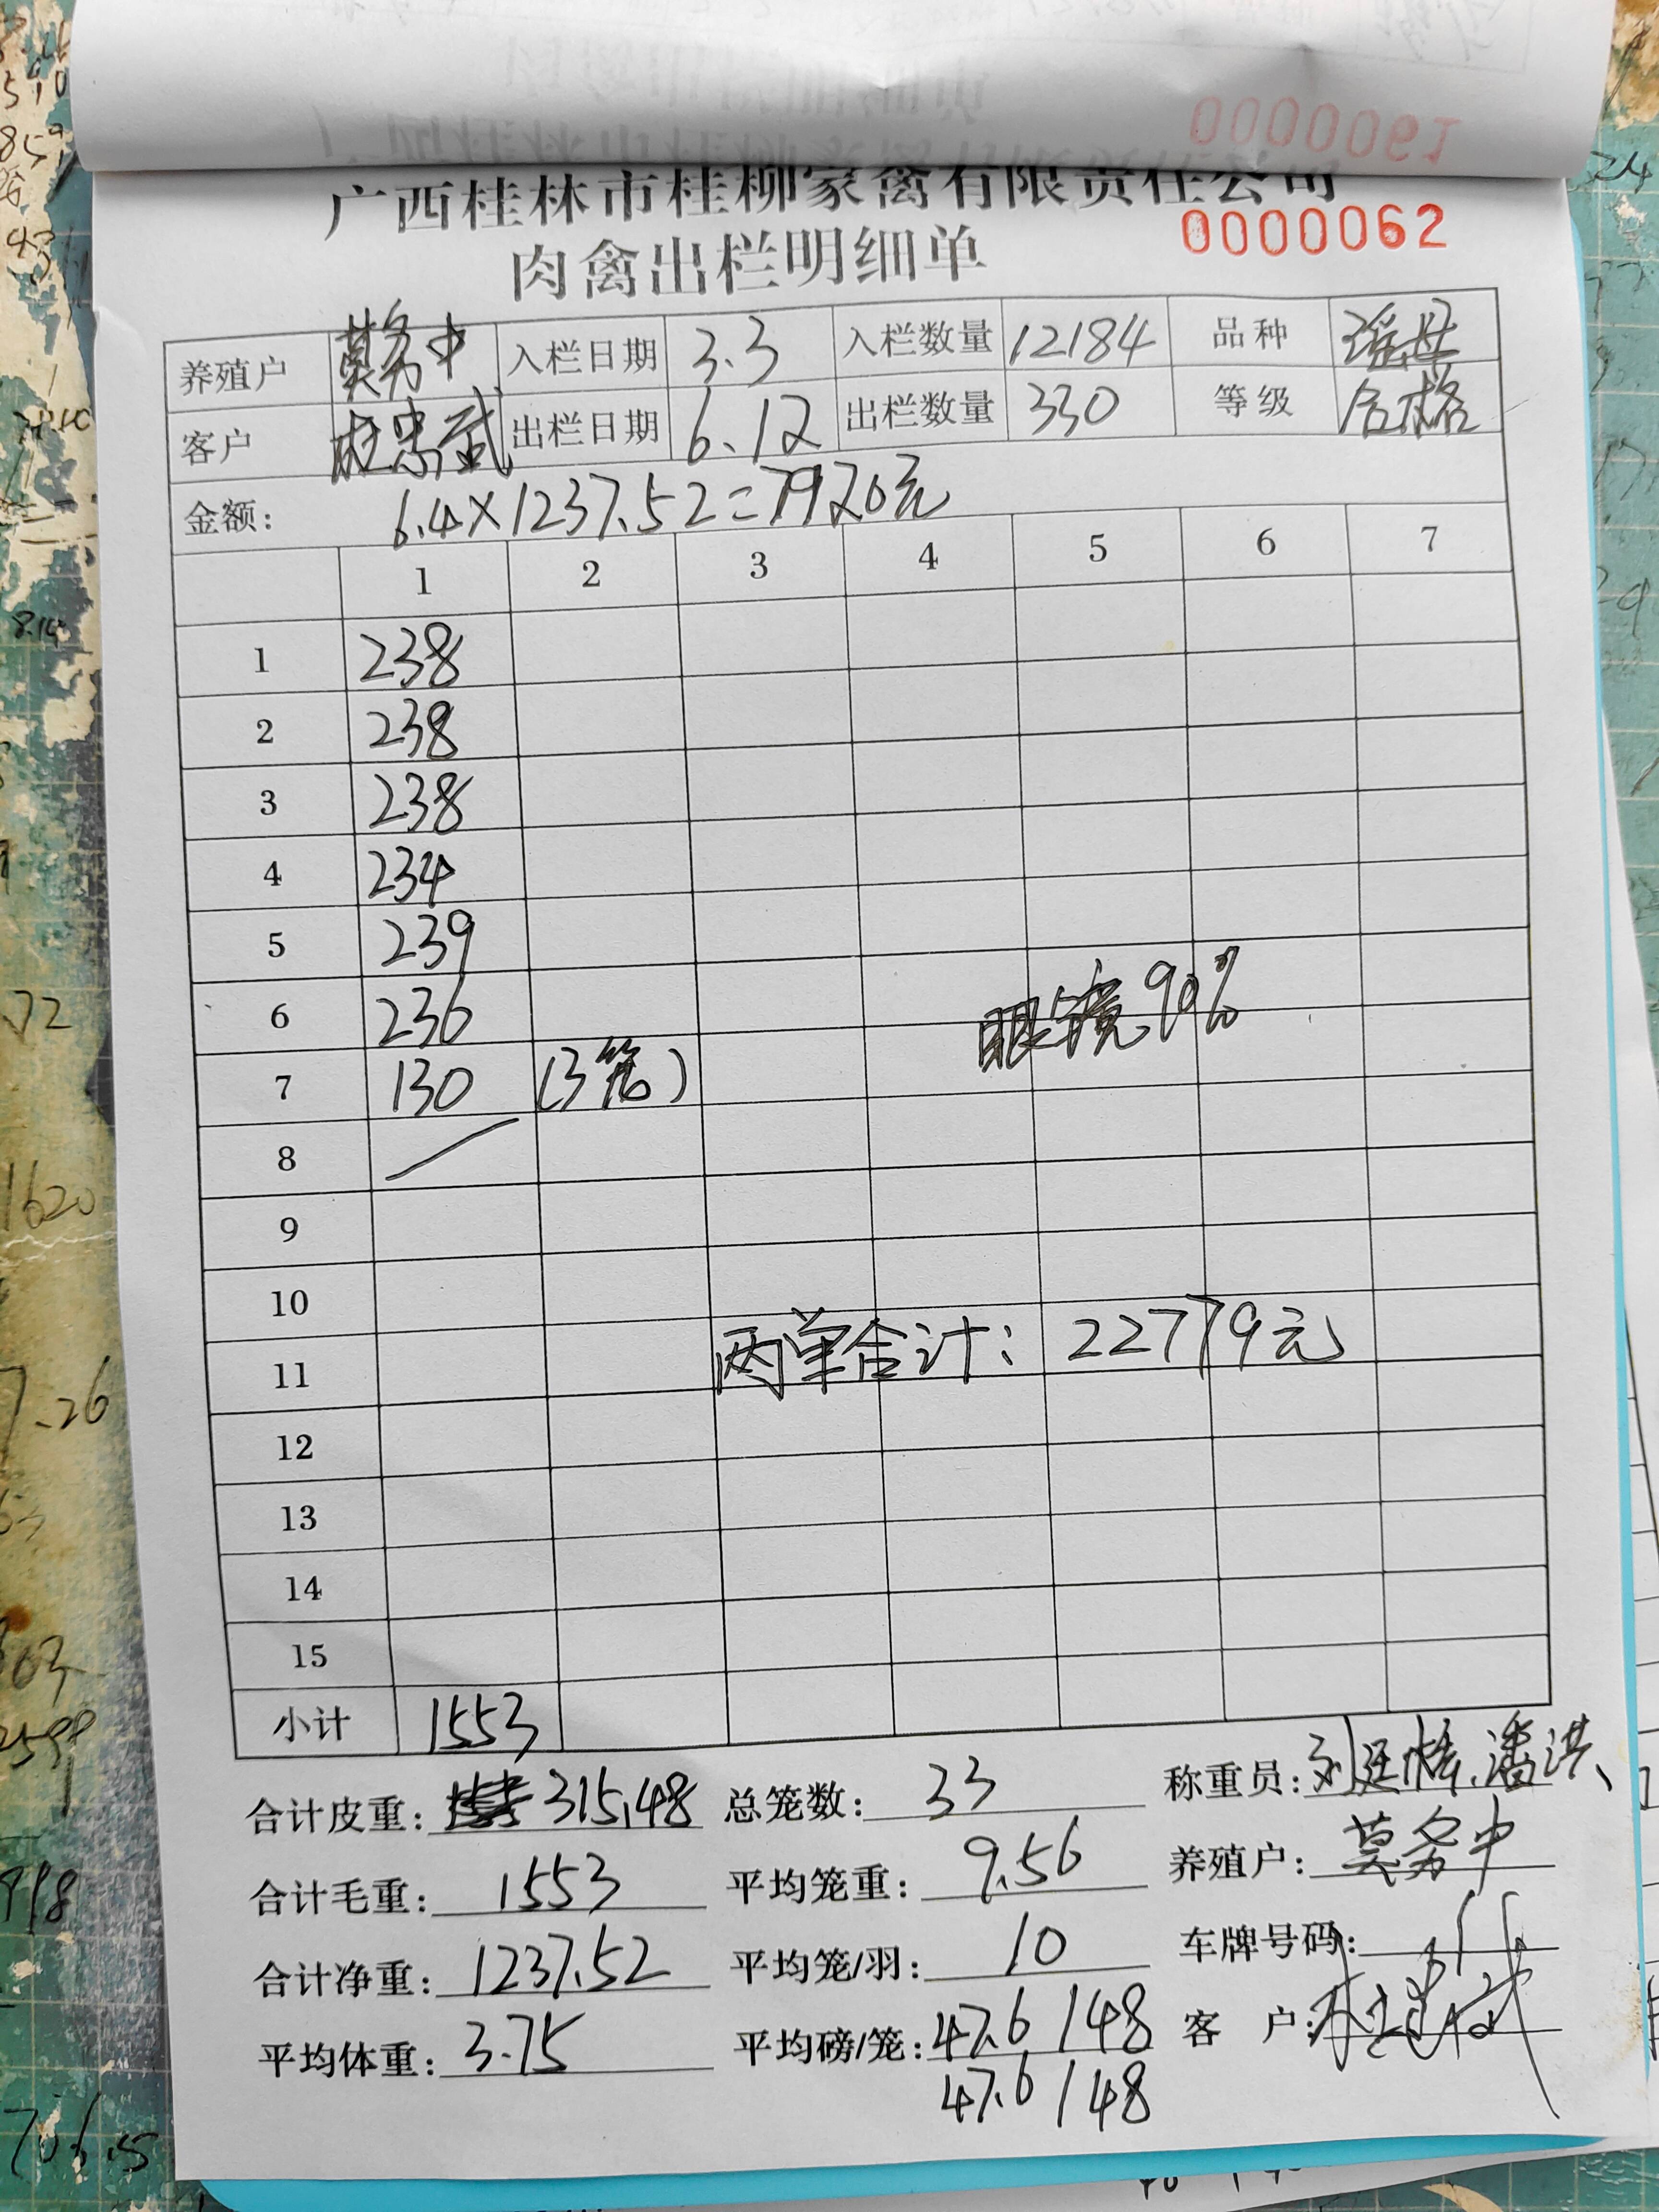 广西桂林市桂柳家禽有限责任公司
肉禽出栏明细单
0000062
养殖户 莫务中 入栏日期 3.3 入栏数量 12184 品种 瑶母
客户 杜忠武 出栏日期 6.12 出栏数量 330 等级 合格
金额: 6.4×1237.52=7920元
1 2 3 4 5 6 7
1 238
2 238
3 238
4 234
5 239
6 236
眼镜90%
7 130 (3笼)
8
9
10
11 两单合计: 22779元
12
13
14
15
小计 1553
合计皮重: 315.48 总笼数: 33 称重员: 潘洪
合计毛重: 1553 平均笼重: 9.56 养殖户: 莫务中
合计净重: 1237.52 平均笼/羽: 10 车牌号码:
平均体重: 3.75 平均磅/笼: 47.6/48 客户:
47.6/48